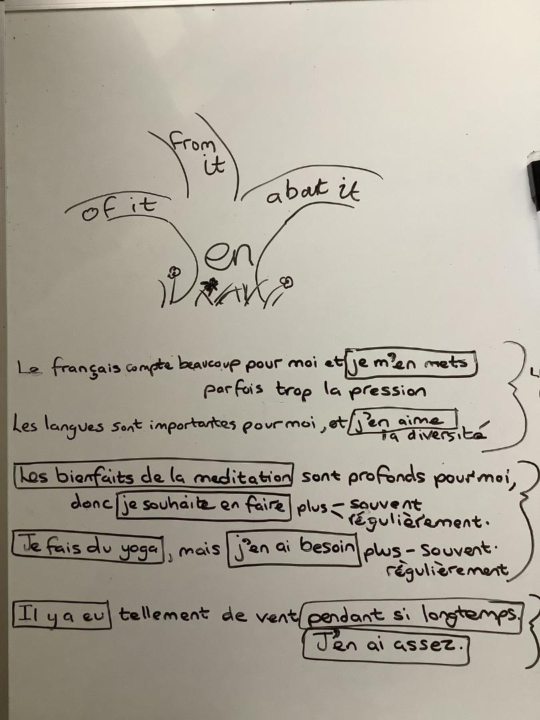 from it
of it
abat it
en
Le français compte beaucoup pour moi et je m'en mets
parfois trop la pression
Les langues sont importantes pour moi, et j'en aime
la diversité
Les bienfaits de la meditation sont profonds pour moi,
donc je souhaite en faire plus - souvent
régulièrement.
Je fais du yoga, mais j'en ai besoin plus - souvent.
règulièrement
Il y a eu tellement de vent pendant si longtemps.
J'en ai assez.